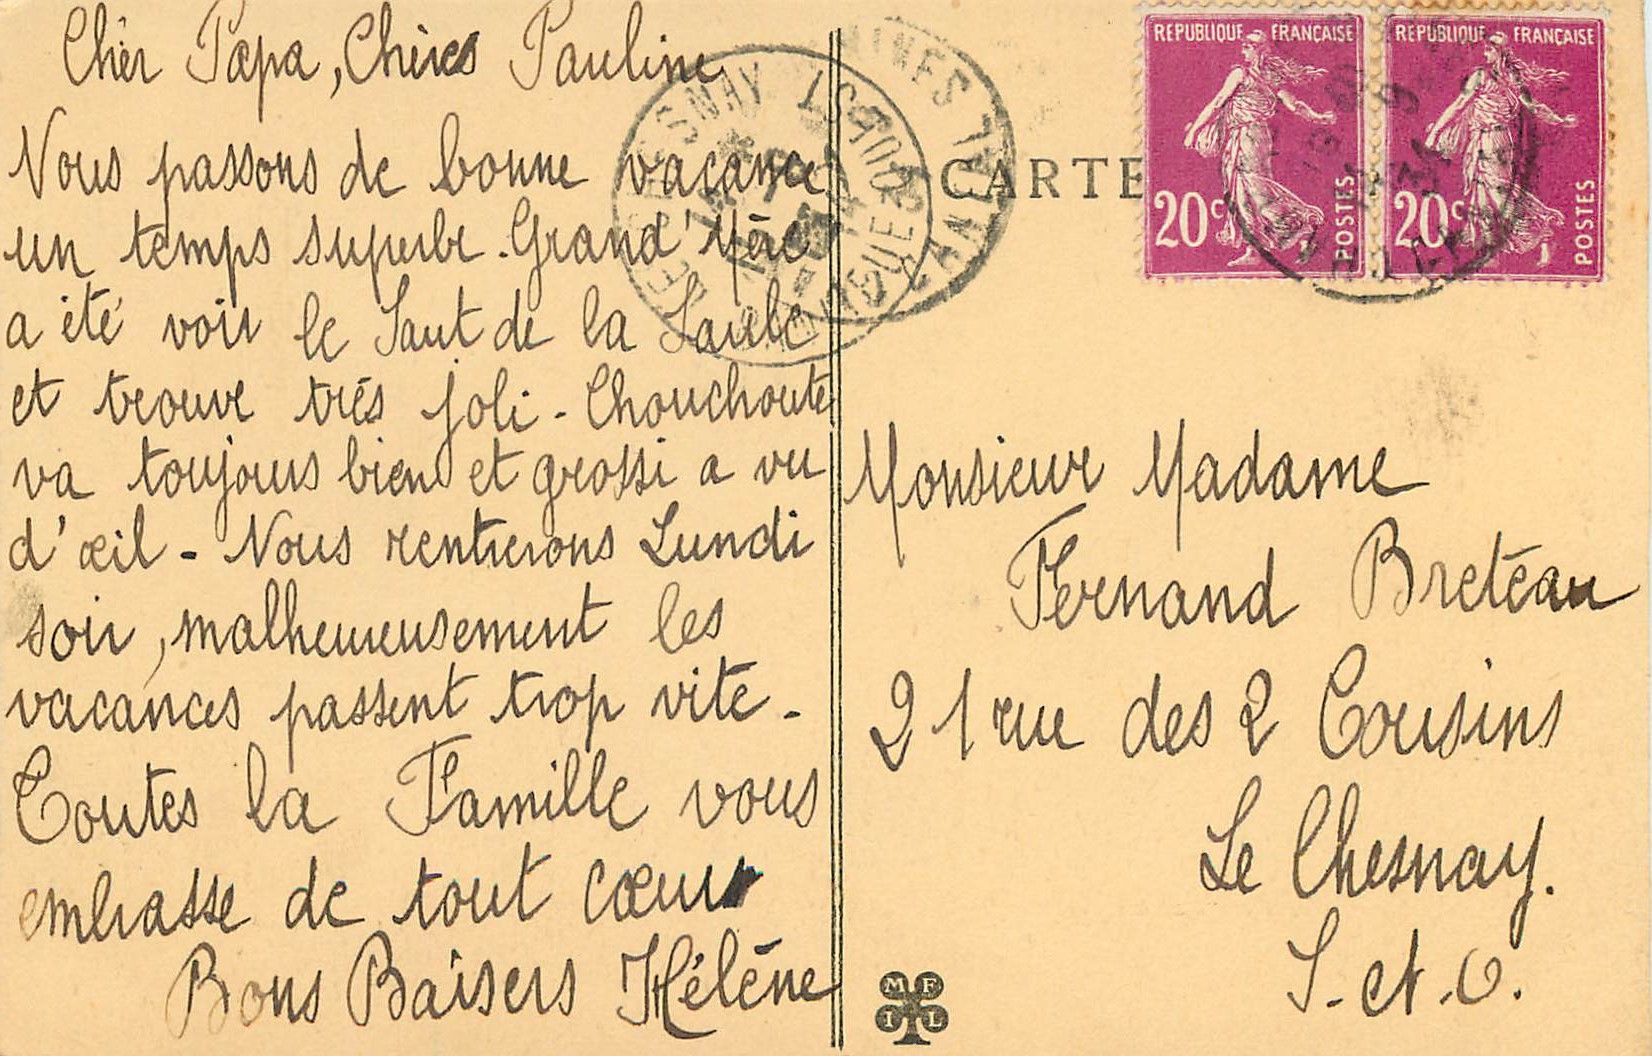 Chèr Papa, Chères Pauline
Nous passons de bonne vacance
un temps superbe. Grand'Mère
a été voir le Saut de la Saule
et trouve très joli - Chouchoute
va toujours bien et grossi a vu
d'œil - Nous rentrerons Lundi
soir, malheureusement les
vacances passent trop vite -
Toutes la Famille vous
embrasse de tout cœur
Bons Baisers Hélène
CARTE
REPUBLIQUE FRANÇAISE
20c
POSTES
REPUBLIQUE FRANÇAISE
20c
POSTES
Monsieur Madame
Fernand Bretéau
21 rue des 2 Cousins
Le Chesnay.
S. et. O.
M F
I L